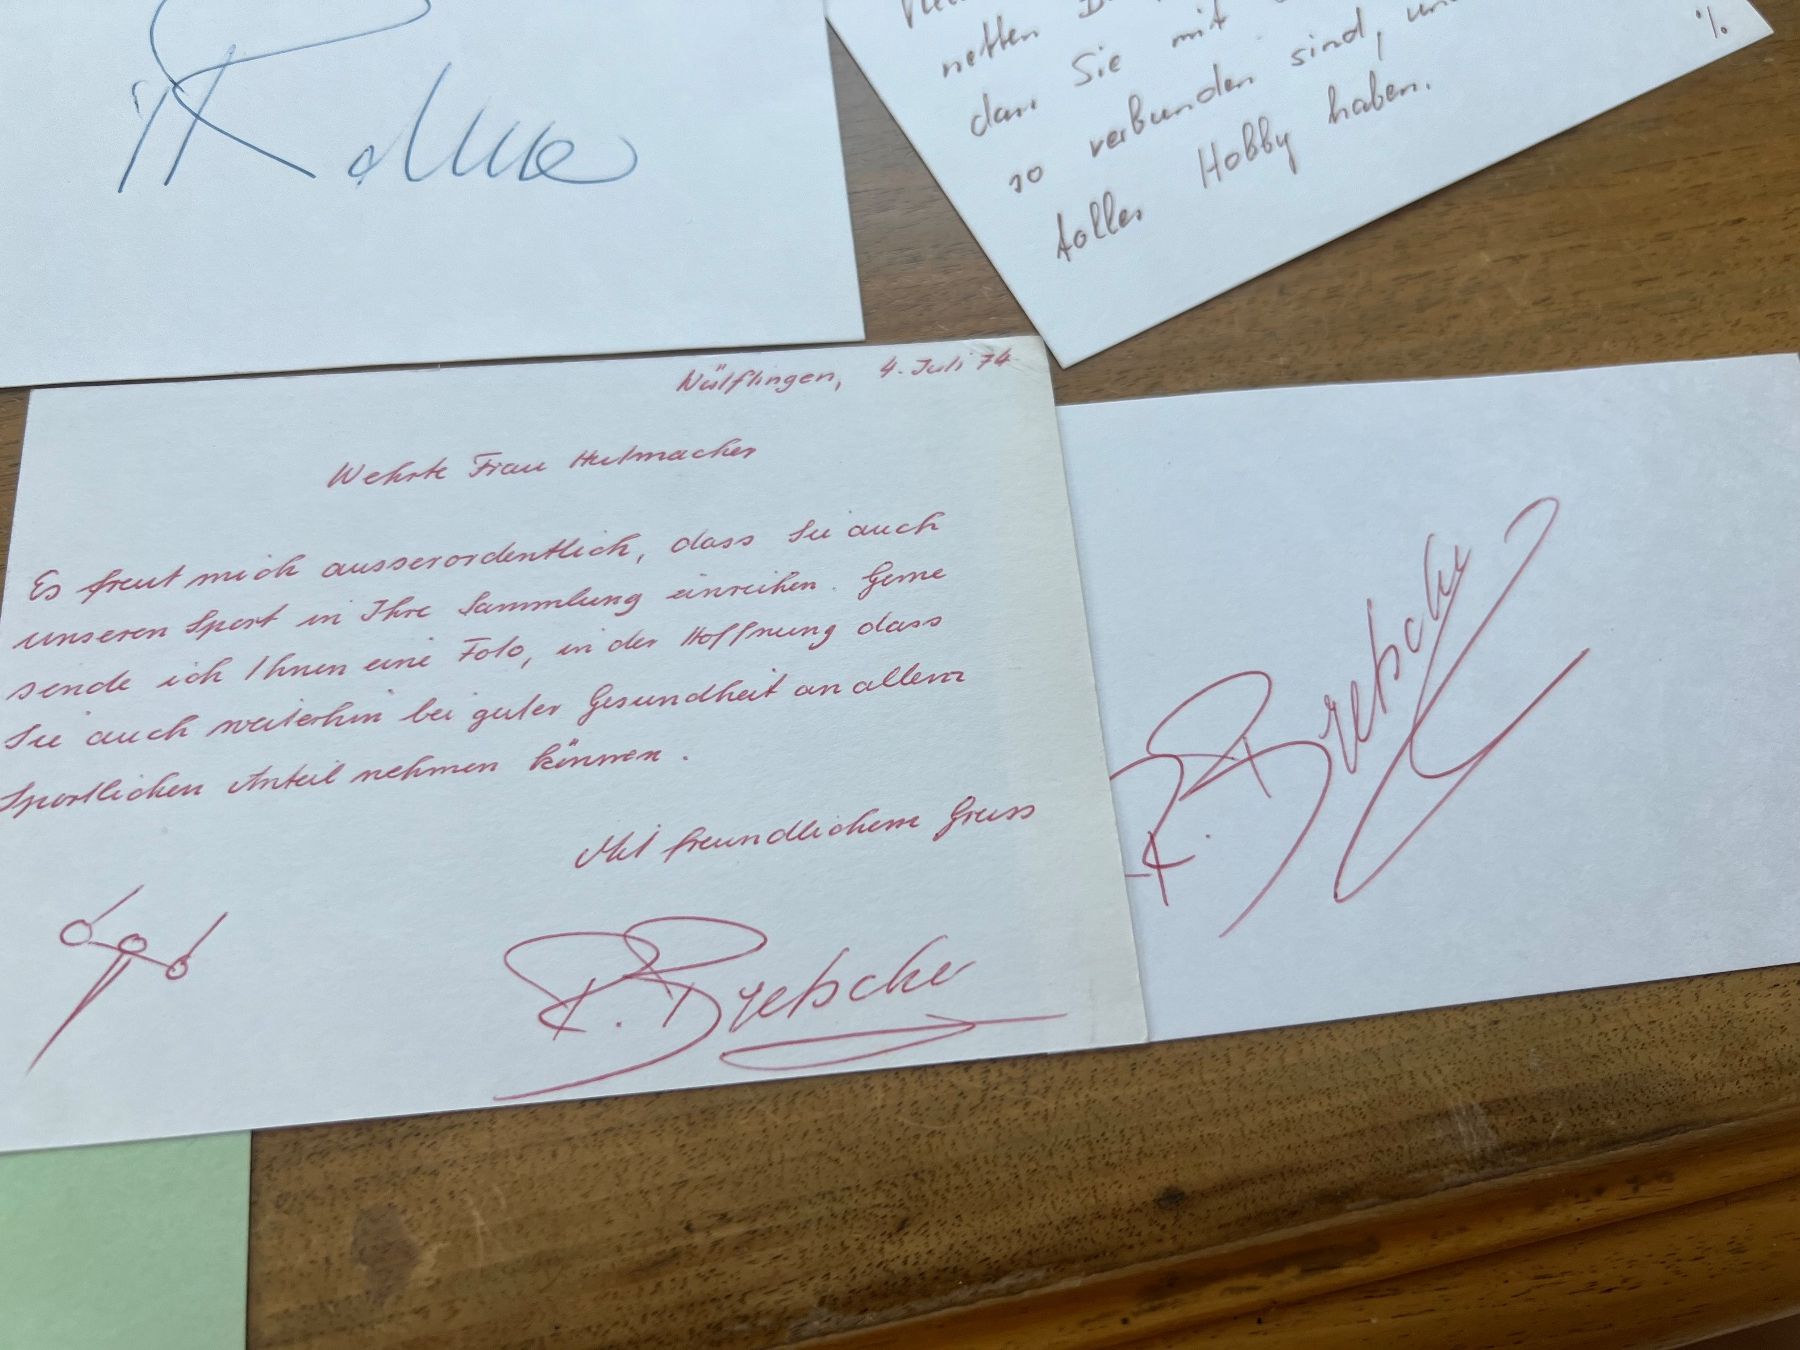 netten
dass Sie mit
so verbunden sind, und
tolles Hobby haben.
%
Nülflingen, 4. Juli 74
Wehrte Frau Hutmacher
Es freut mich ausserordentlich, dass Sie auch
unseren Sport in Ihre Sammlung einreihen. Gerne
sende ich Ihnen eine Foto, in der Hoffnung dass
Sie auch weiterhin bei guter Gesundheit an allem
Sportlichen Anteil nehmen können.
Mit freundlichem Gruss
R. Bretscher
R. Bretscher